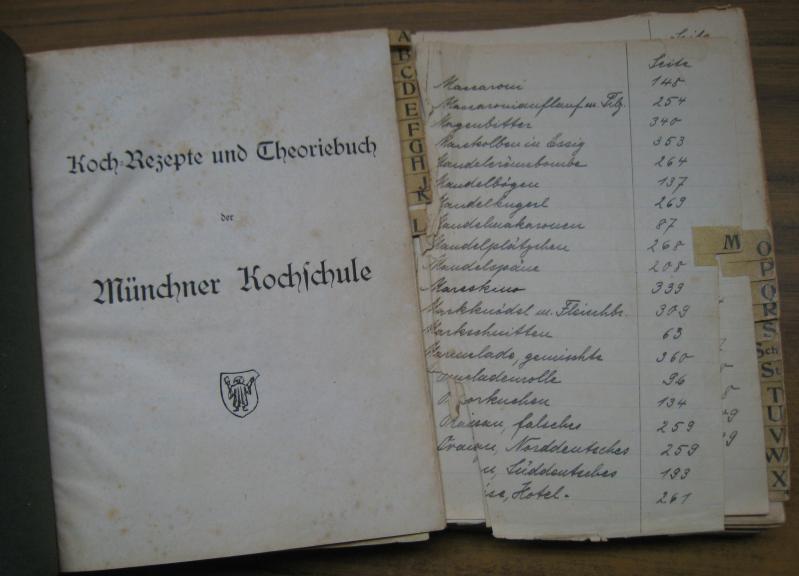 Koch-Rezepte und Theoriebuch
der
Münchner Kochschule
A
B
C
D
E
F
G
H
J
K
L
Seite
Seite
Maccaroni 148
Maccaroniauflauf m. Pilz. 254
Magenbitter 340
Maiskolben in Essig 353
Mandelcrèmebombe 264
Mandelbögen 137
Mandelkugerl 269
Mandelmakaronen 87
Mandelplätzchen 268
Mandelspäne 208
Maraskino 339
Markknödel m. Fleischbr. 309
Markschnitten 63
Marmelade, gemischte 360
omeladenrolle 96
orkuchen 134
falsches 259
Norddeutsches 259
Süddeutsches 193
ise, Hotel- 261
M
O
P
Q
R
S
Sch
St
T
U
V
W
X